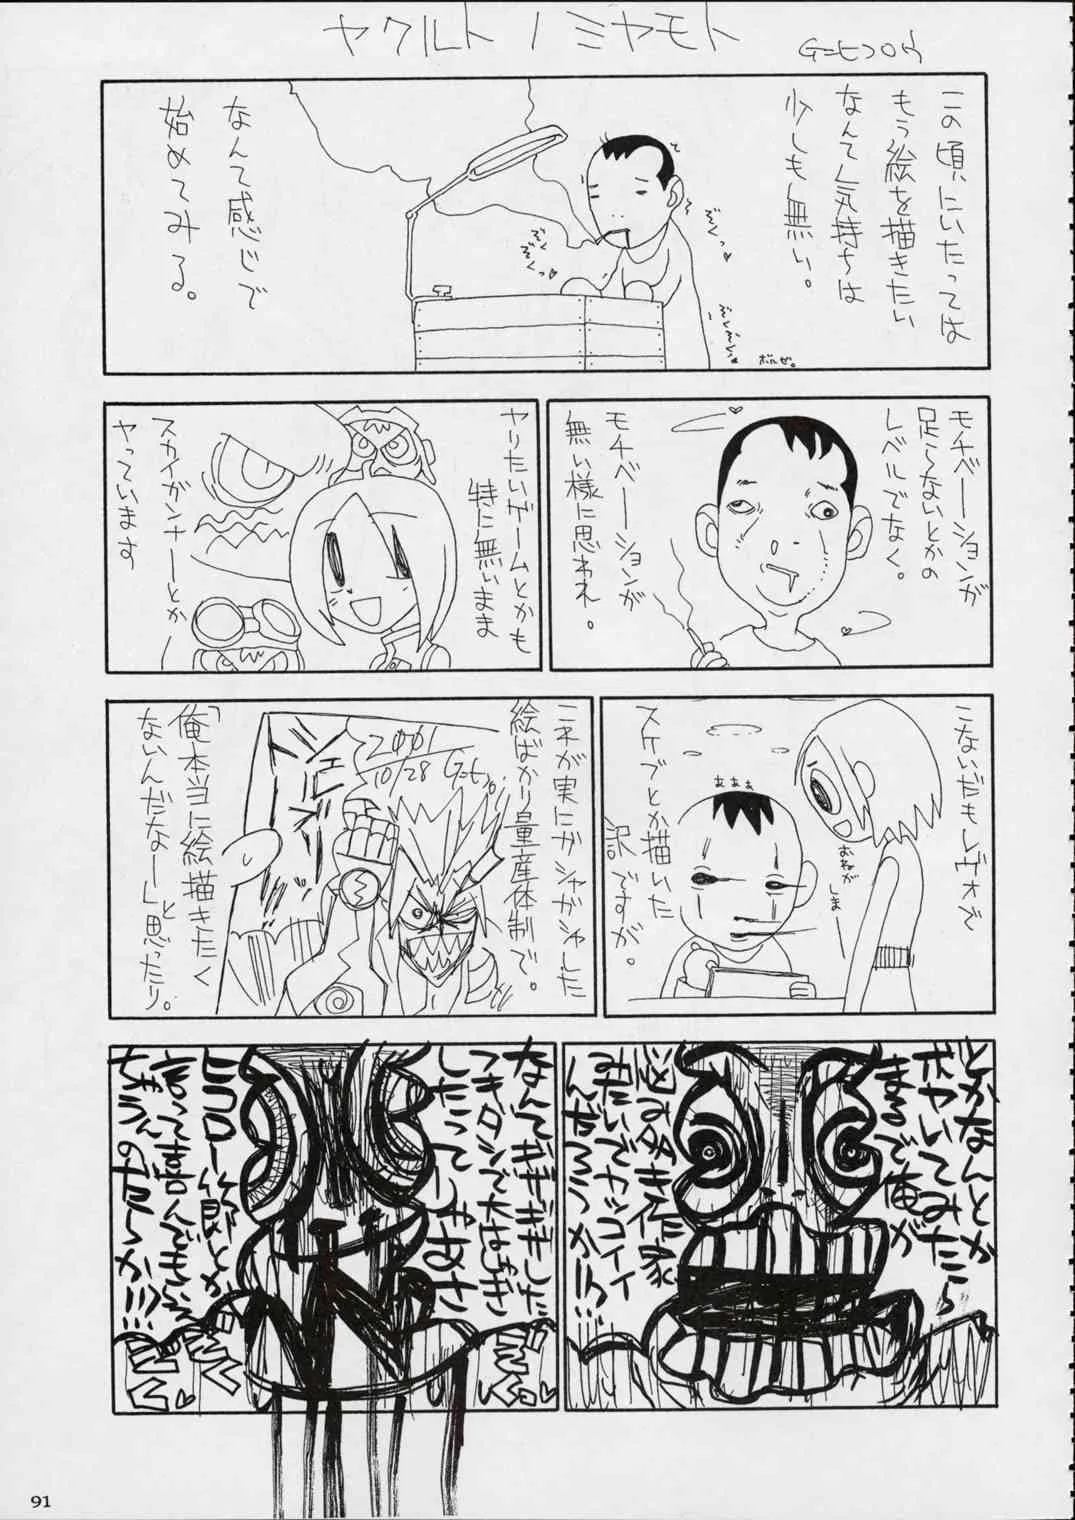 ヤクルトノミヤモト
G=ヒコロウ
この頃にいたっては
もう絵を描きたい
なんて気持ちは
少しも無い。
なんて感じで
始めてみる。
ぞくっ
ぞくぞくっ
ぞくぞくぞくっ
ボルゼ。
モチベーションが
足らないとかの
レベルでなく。
モチベーションが
無い様に思われ。
ヤりたいゲームとかも
特に無いまま
スカイガンナーとか
ヤっています
こないだもレヴォで
スケブとか描いた
訳ですが。
おねがい
しま
ぁぁぁ
これが実にガシャガシャした
絵ばかり量産体制で。
「俺本当に絵描きたく
ないんだなー」と
思ったり。
2001
10/28
とかなんとか
ボヤいてみたら
まるで俺が
悩み多き作家
みたいでカッコイイ
んだろうかーっ!!
なんてぎぎぎした
フキダシで大はしゃぎ
したってーじゃあさ
ヒコロー節とか
言って喜んでもらえ
ちゃうのかーっ!!!
91